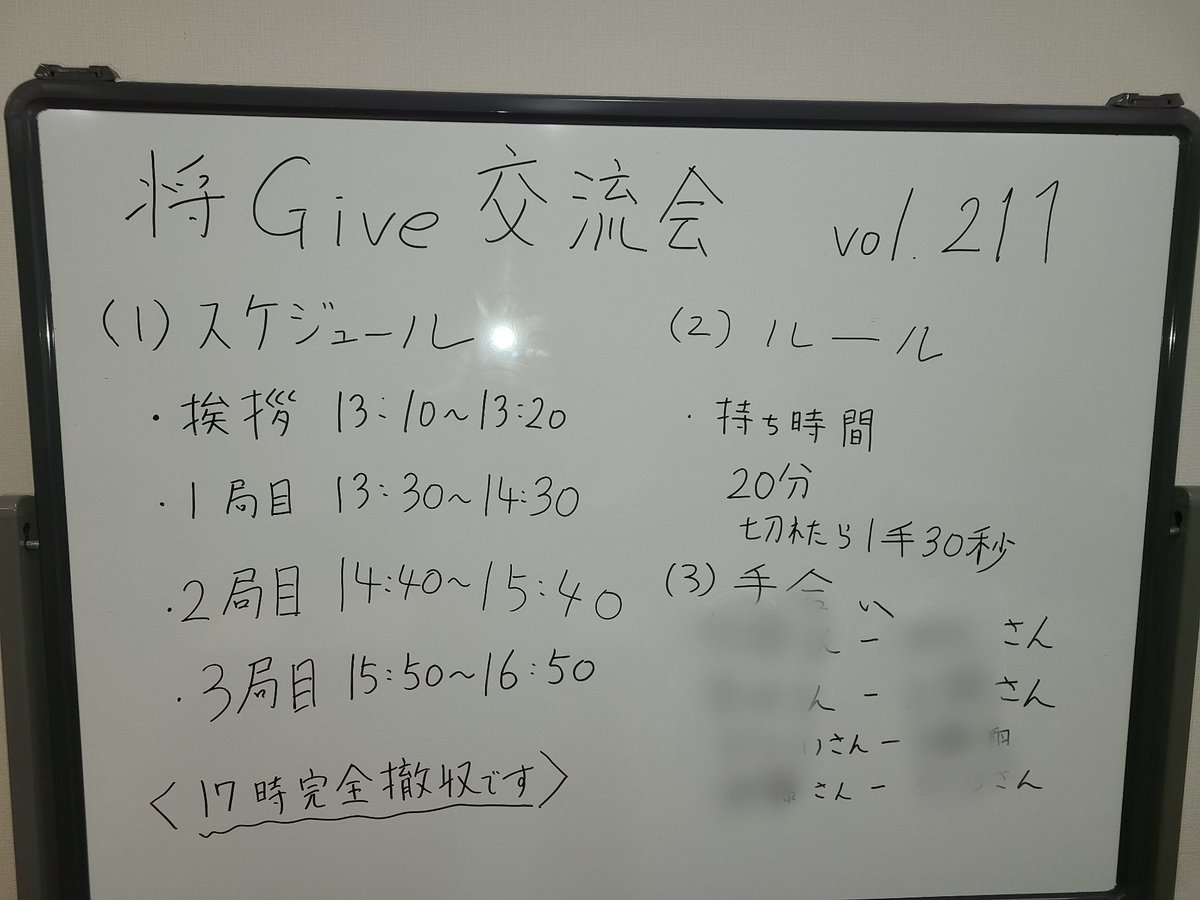 将Give交流会 vol.211
(1)スケジュール
・挨拶 13:10~13:20
・1局目 13:30~14:30
・2局目 14:40~15:40
・3局目 15:50~16:50
<17時完全撤収です>
(2)ルール
・持ち時間
20分
切れたら1手30秒
(3)手合い
ん - さん
ん - さん
りさん -
さん - さん